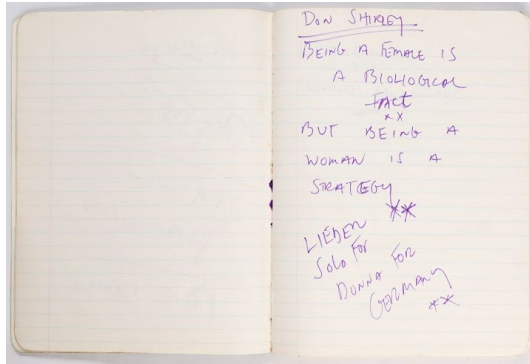 DON SHIRLEY
BEING A FEMALE IS
A BIOLIOGICAL
FACT
**
BUT BEING A
WOMAN IS A
STRATEGY
**
LIEDER
SOLO FOR
DONNA FOR
GERMANY
**